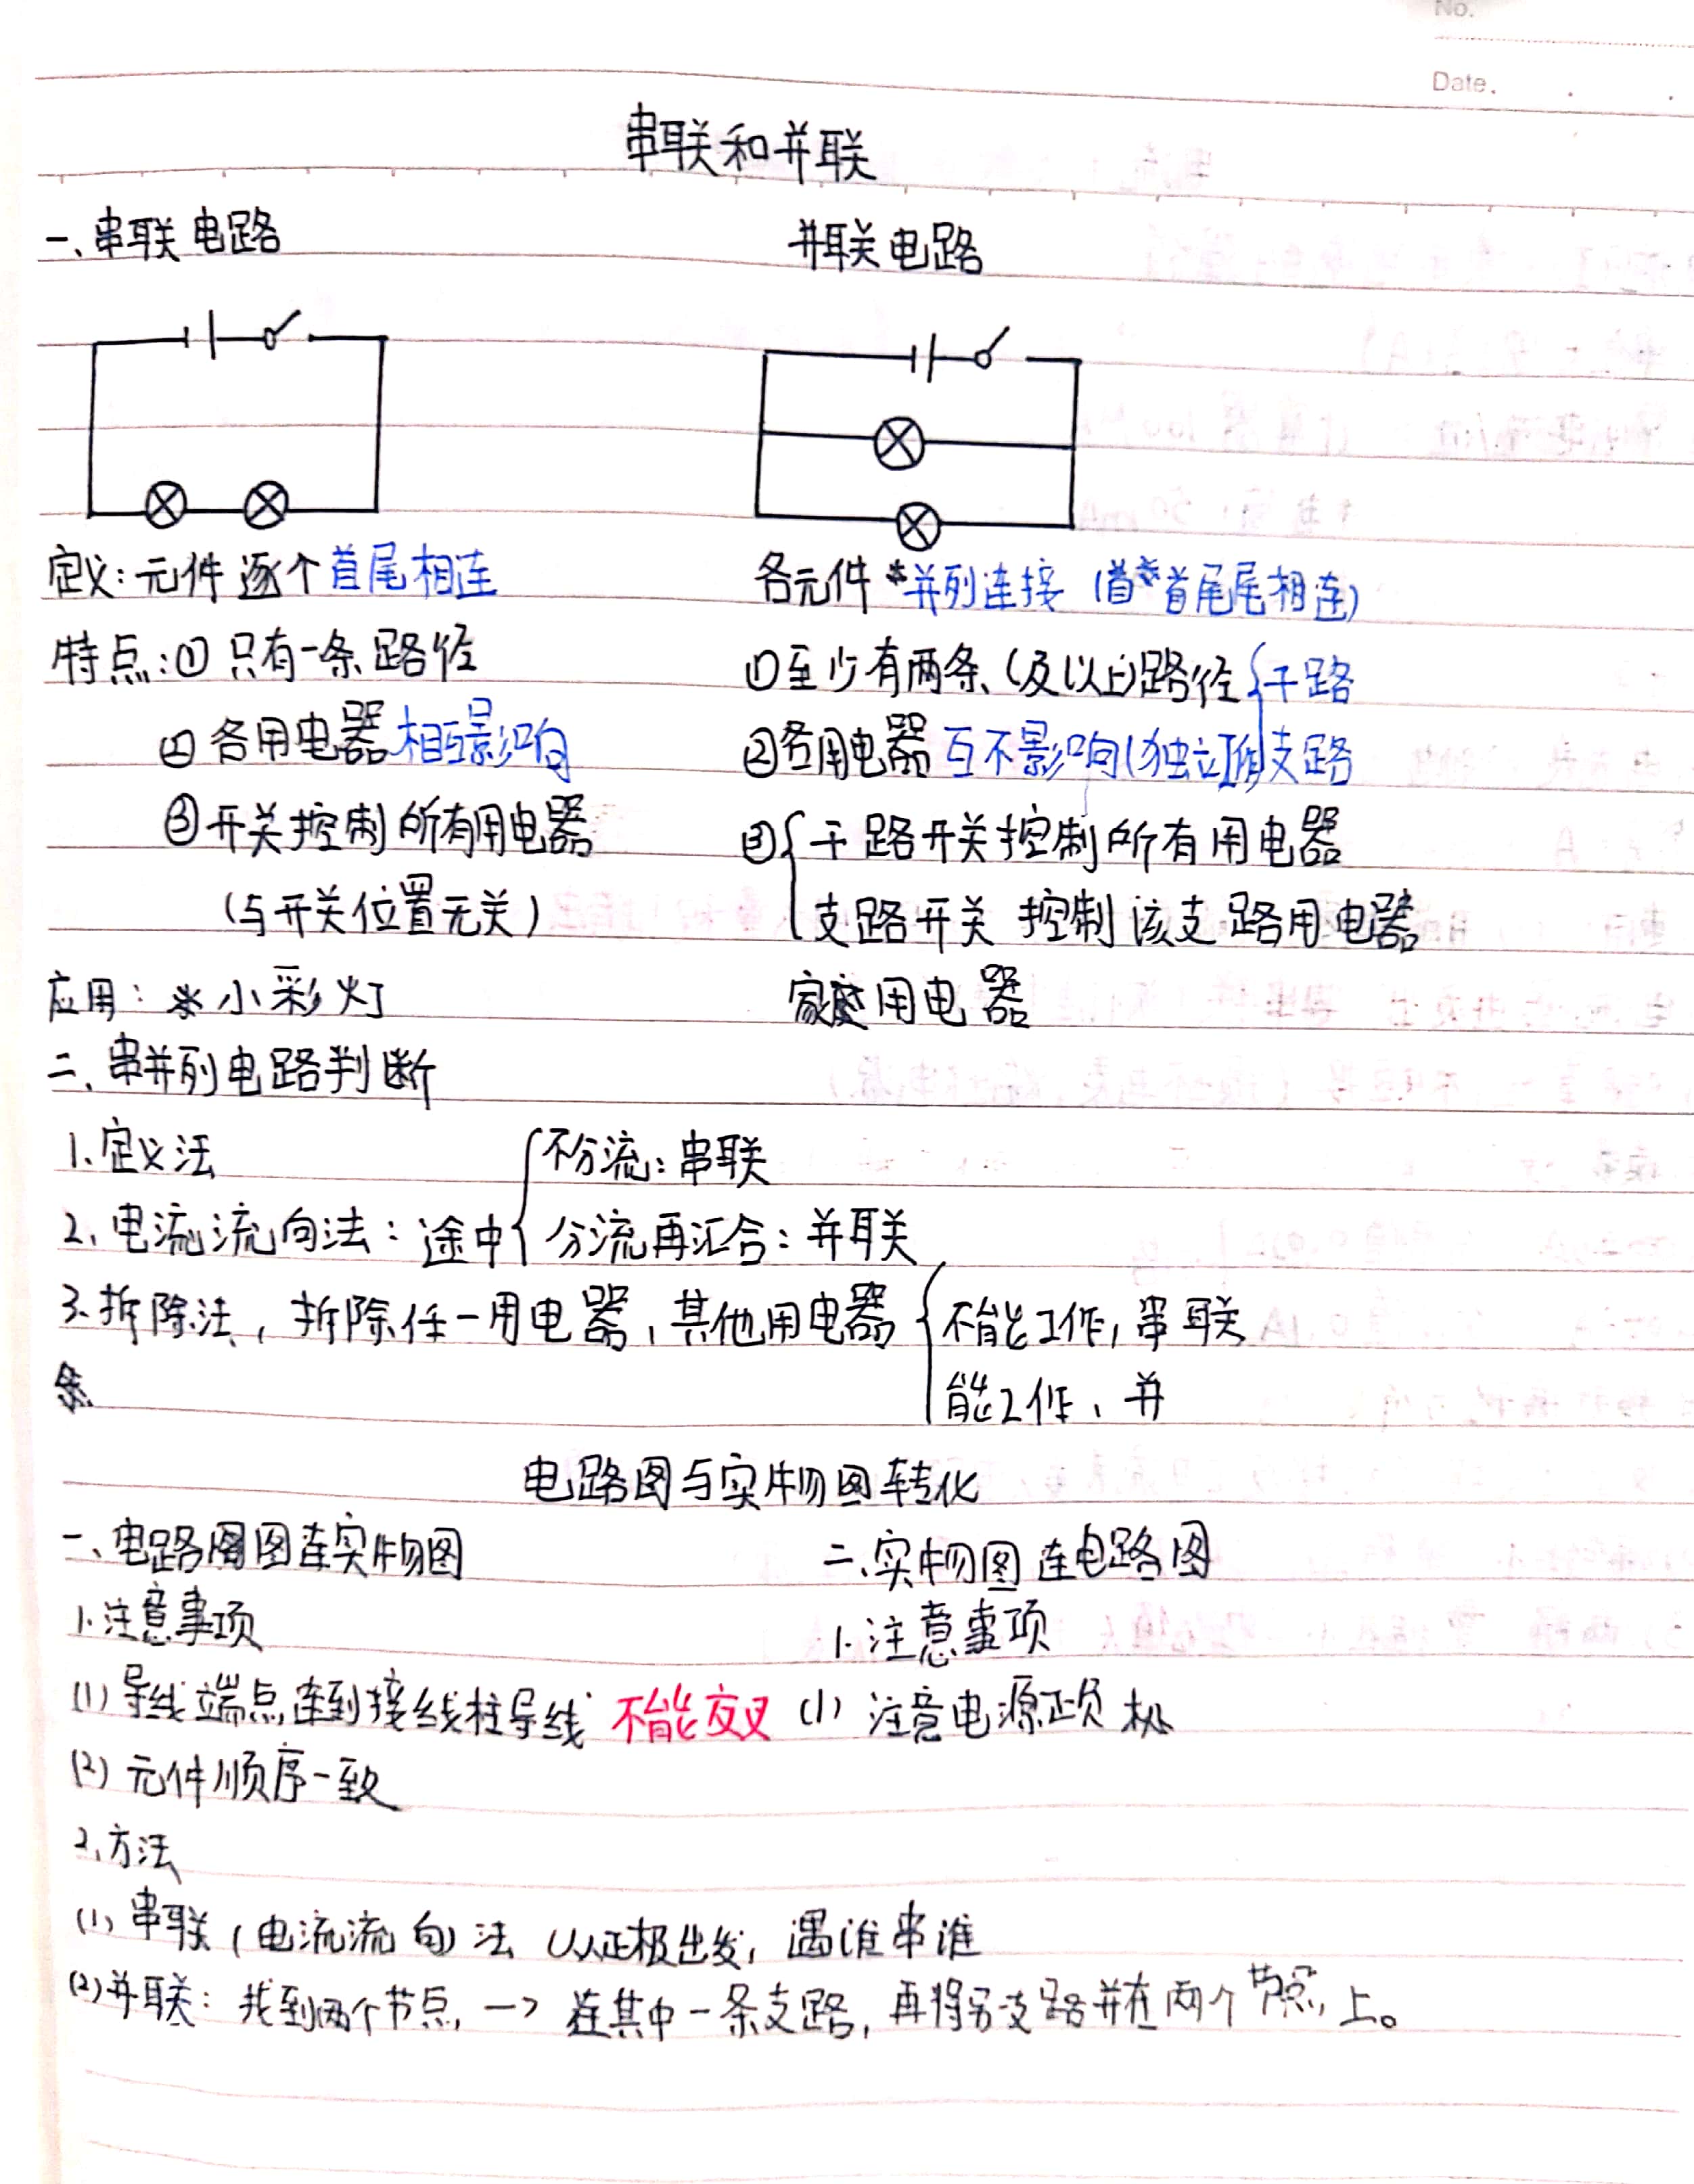 No.
Date.
串联和并联
一、串联电路 并联电路
定义:元件逐个首尾相连 各元件并列连接(首首尾尾相连)
特点:①只有一条路径 ①至少有两条(及以上)路径{干路
②各用电器相互影响 ②各用电器互不影响(独立工作) 支路
③开关控制所有用电器 ③{干路开关控制所有用电器
(与开关位置无关) 支路开关控制该支路用电器
应用:小彩灯 家庭用电器
二、串并列电路判断
1、定义法 {不分流:串联
2、电流流向法:途中 分流再汇合:并联
3、拆除法,拆除任一用电器,其他用电器{不能工作,串联
能工作、并
电路图与实物图转化
一、电路图连实物图 二、实物图连电路图
1.注意事项 1.注意事项
(1)导线端点连到接线柱导线不能交叉 (1)注意电源正负极
(2)元件顺序一致
2、方法
(1)串联(电流流向)法 从正极出发,遇谁串谁
(2)并联:找到两个节点,—>连其中一条支路,再将另支路并在两个节点上。